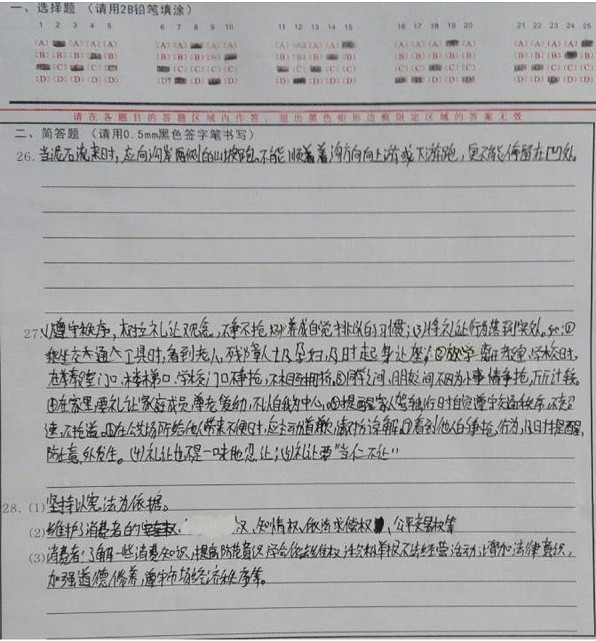 一、选择题 （请用2B铅笔填涂）
1 2 3 4 5 6 7 8 9 10 11 12 13 14 15 16 17 18 19 20 21 22 23 24 25
请在各题目的答题区域内作答，超出黑色矩形边框限定区域的答案无效
二、简答题 （请用0.5mm黑色签字笔书写）
26. 当泥石流来时，应向沟岸两侧的山坡跑，不能顺着沟方向向上游或下游跑，更不能停留在凹处。
27. (1)遵守秩序，树立礼让观念，不争不抢 (2)养成自觉排队的习惯；(3)将礼让行为落到实处。如：①
乘坐交通工具时，看到老人、残疾人士及孕妇，及时起身让座；②放学离开教室、学校时，
在教室门口、楼梯口、学校门口不争抢，不相互拥挤。③同学之间、朋友之间不因为小事情争抢，斤斤计较。
④在家里要礼让家庭成员，尊老爱幼，不以自我为中心。⑤提醒家人驾车出行时自觉遵守交通秩序，不超
速，不抢道。⑥在公共场所给他人带来不便时，应主动道歉，请对方谅解。⑦看到他人有争抢行为，及时提醒，
防止意外发生。(4)礼让也不是一味地忍让；(5)礼让要"当仁不让"
28. (1) 坚持以宪法为依据。
(2) 维护了消费者的 权、知情权、依法求偿权、公平交易权等
(3) 消费者：了解一些消费知识，提高防范意识，学会依法维权 增加法律意识，
加强道德修养，遵守市场经济秩序等。